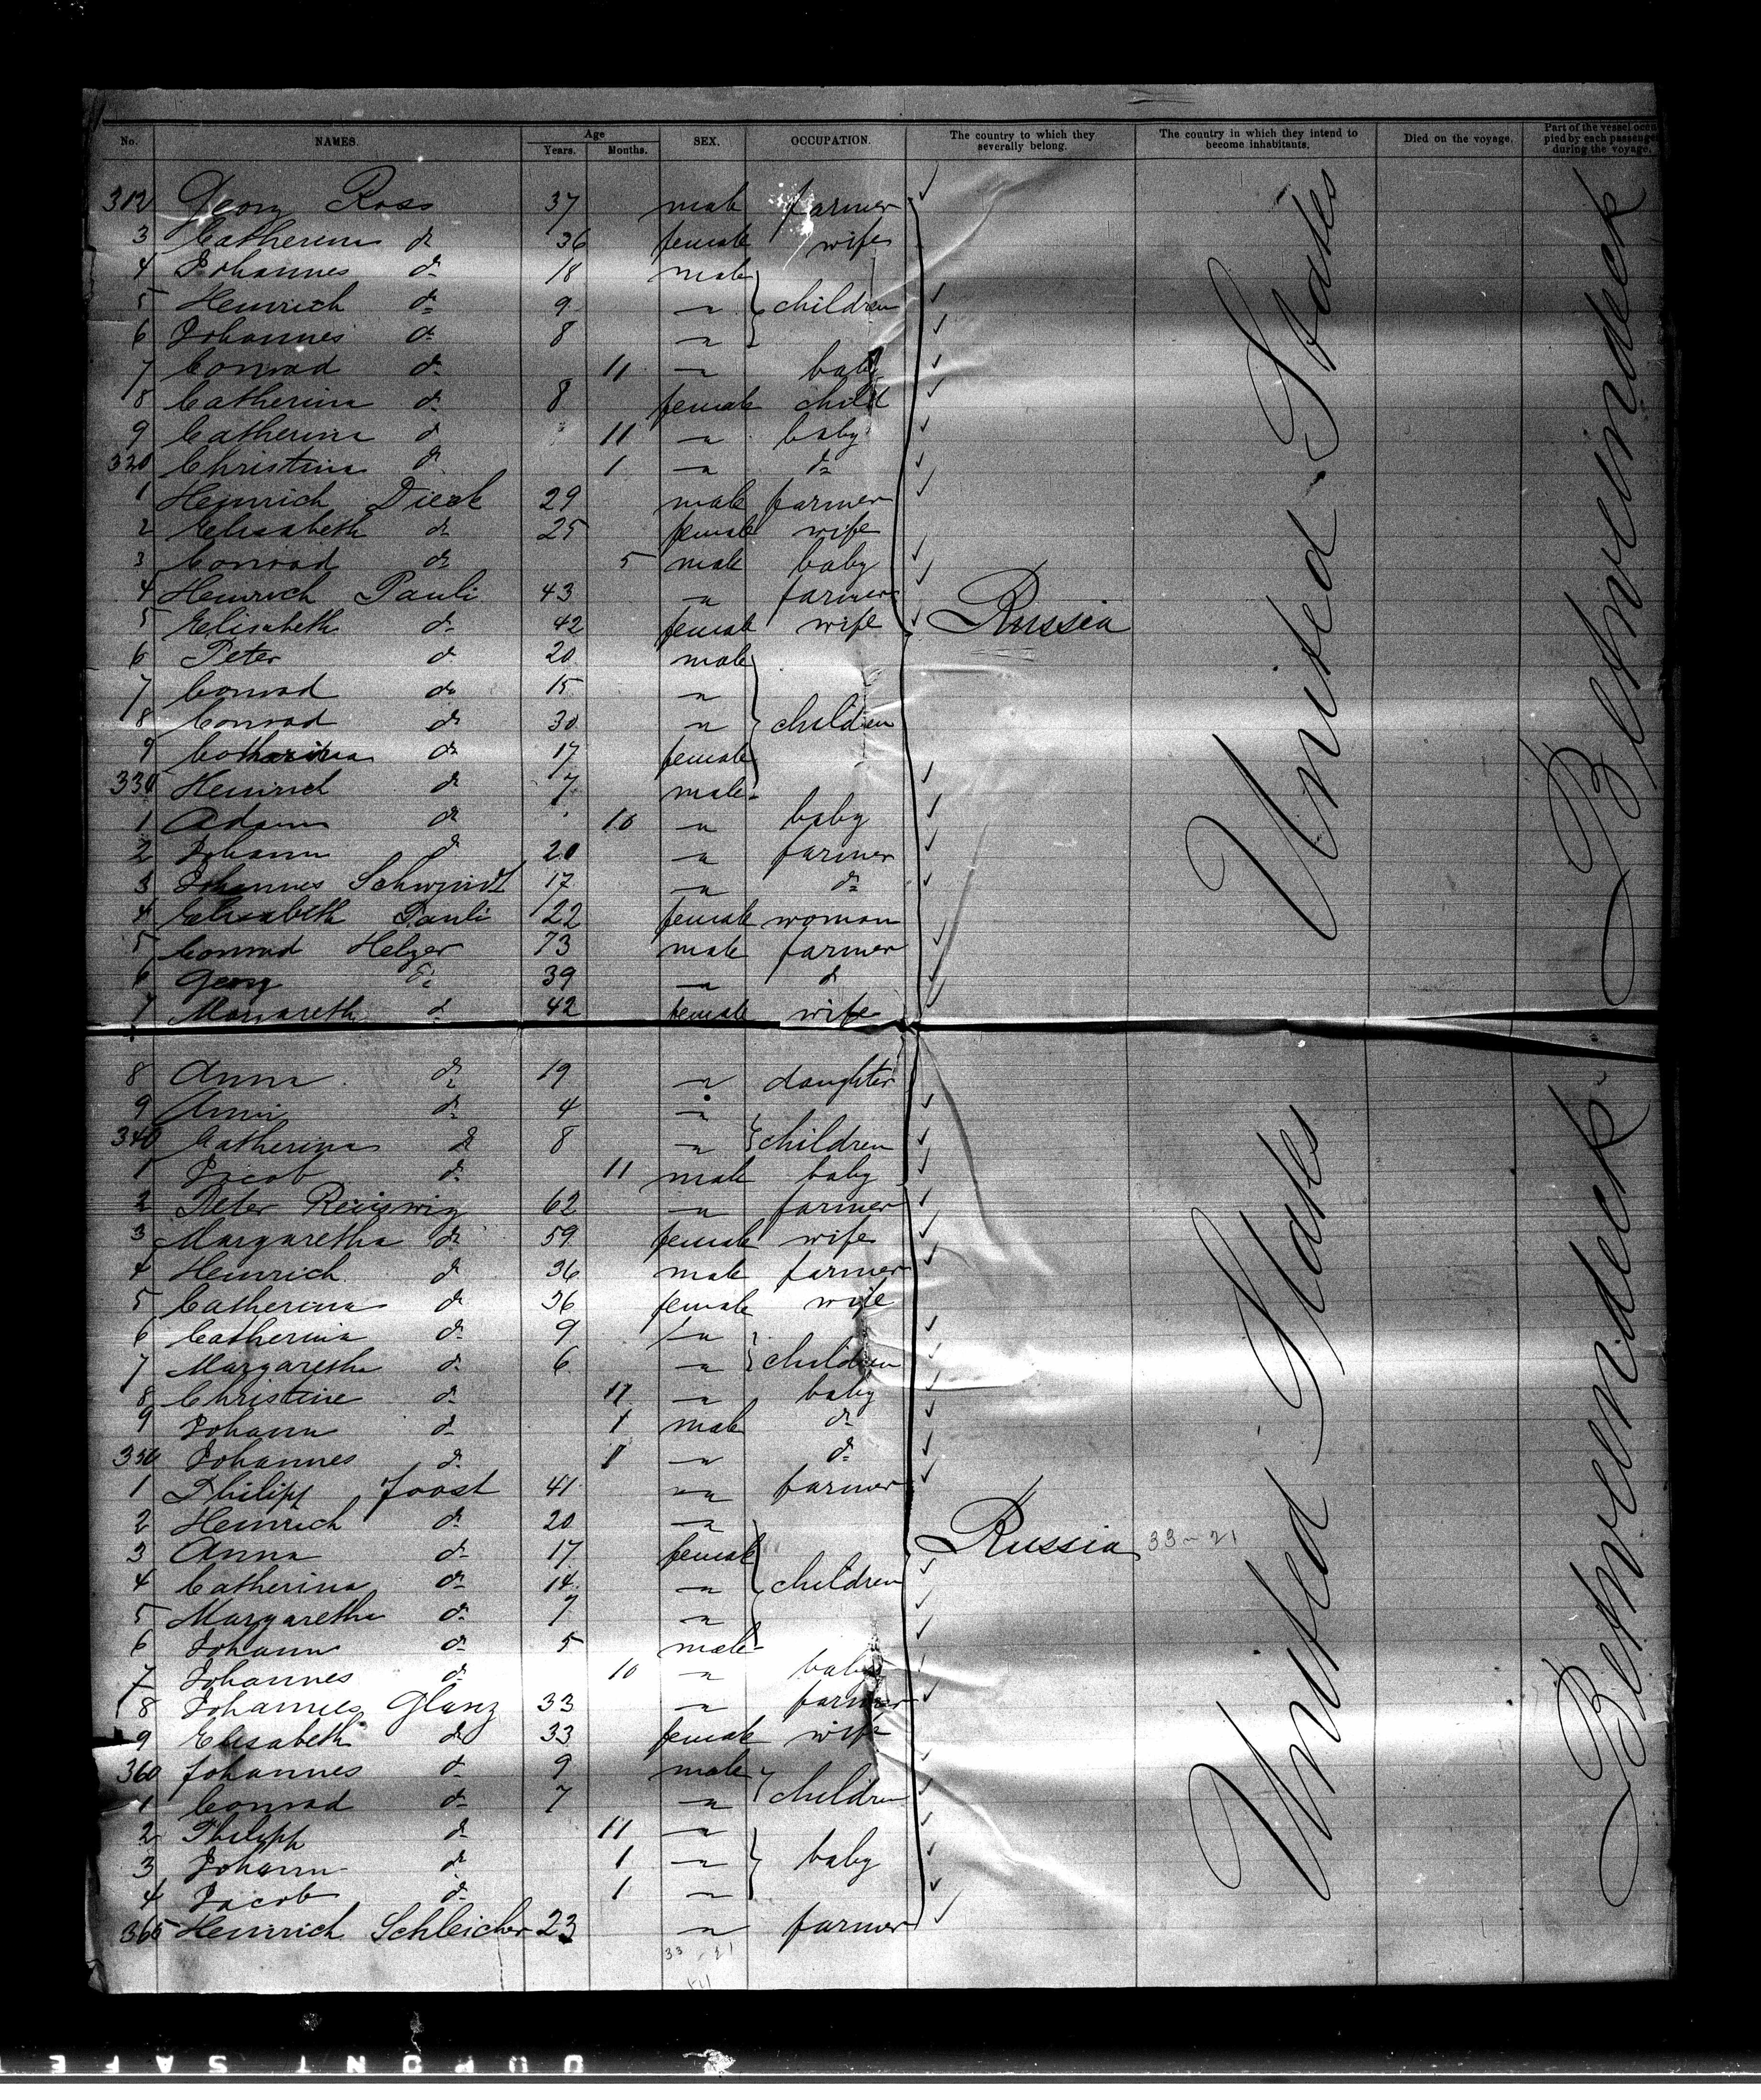 No. NAMES. Age Years. Months. SEX. OCCUPATION. The country to which they severally belong. The country in which they intend to become inhabitants. Died on the voyage. Part of the vessel occupied by each passenger during the voyage.
312 Georg Ross 37 male farmer
3 Catherina do 36 female wife
4 Johannes do 18 male
5 Heinrich do 9 " children
6 Johannes do 8 "
7 Conrad do 11 " baby
8 Catherina do 8 female child
9 Catherina do 11 " baby
320 Christina do 1 " do
1 Heinrich Dieck 29 male farmer
2 Elisabeth do 25 female wife
3 Conrad do 5 male baby
4 Heinrich Pauli 43 " farmer
5 Elisabeth do 42 female wife
Russia
6 Peter do 20 male
7 Conrad do 15 "
8 Conrad do 30 " children
9 Catharina do 17 female
330 Heinrich do 7 male
1 Adam do 10 " baby
2 Johann do 20 " farmer
3 Johannes Schmidt 17 " do
4 Elisabeth Pauli 22 female woman
5 Conrad Helzer 73 male farmer
6 Georg do 39 " do
7 Margareth do 42 female wife
United States
Betweendeck
8 Anna do 19 " daughter
9 Anni do 4 "
340 Catherina do 8 " children
1 Jacob do 11 male baby
2 Peter Reiswig 62 " farmer
3 Margaretha do 59 female wife
4 Heinrich do 36 male farmer
5 Catherina do 36 female wife
6 Catherina do 9 "
7 Margaretha do 6 " children
8 Christine do 11 " baby
9 Johann do 1 male do
350 Johannes do 1 " do
1 Philipp Joost 41 " farmer
2 Heinrich do 20 "
3 Anna do 17 female
Russia 33-21
4 Catherina do 14 " children
5 Margaretha do 7 "
6 Johann do 5 male
7 Johannes do 10 " baby
8 Johannes Glanz 33 " farmer
9 Elisabeth do 33 female wife
360 Johannes do 9 male
1 Conrad do 7 " children
2 Philipp do 11 "
3 Johann do 1 " baby
4 Jacob do 1 "
365 Heinrich Schleicher 23 " farmer
United States
Betweendeck
33-21
DUPONT SAFE